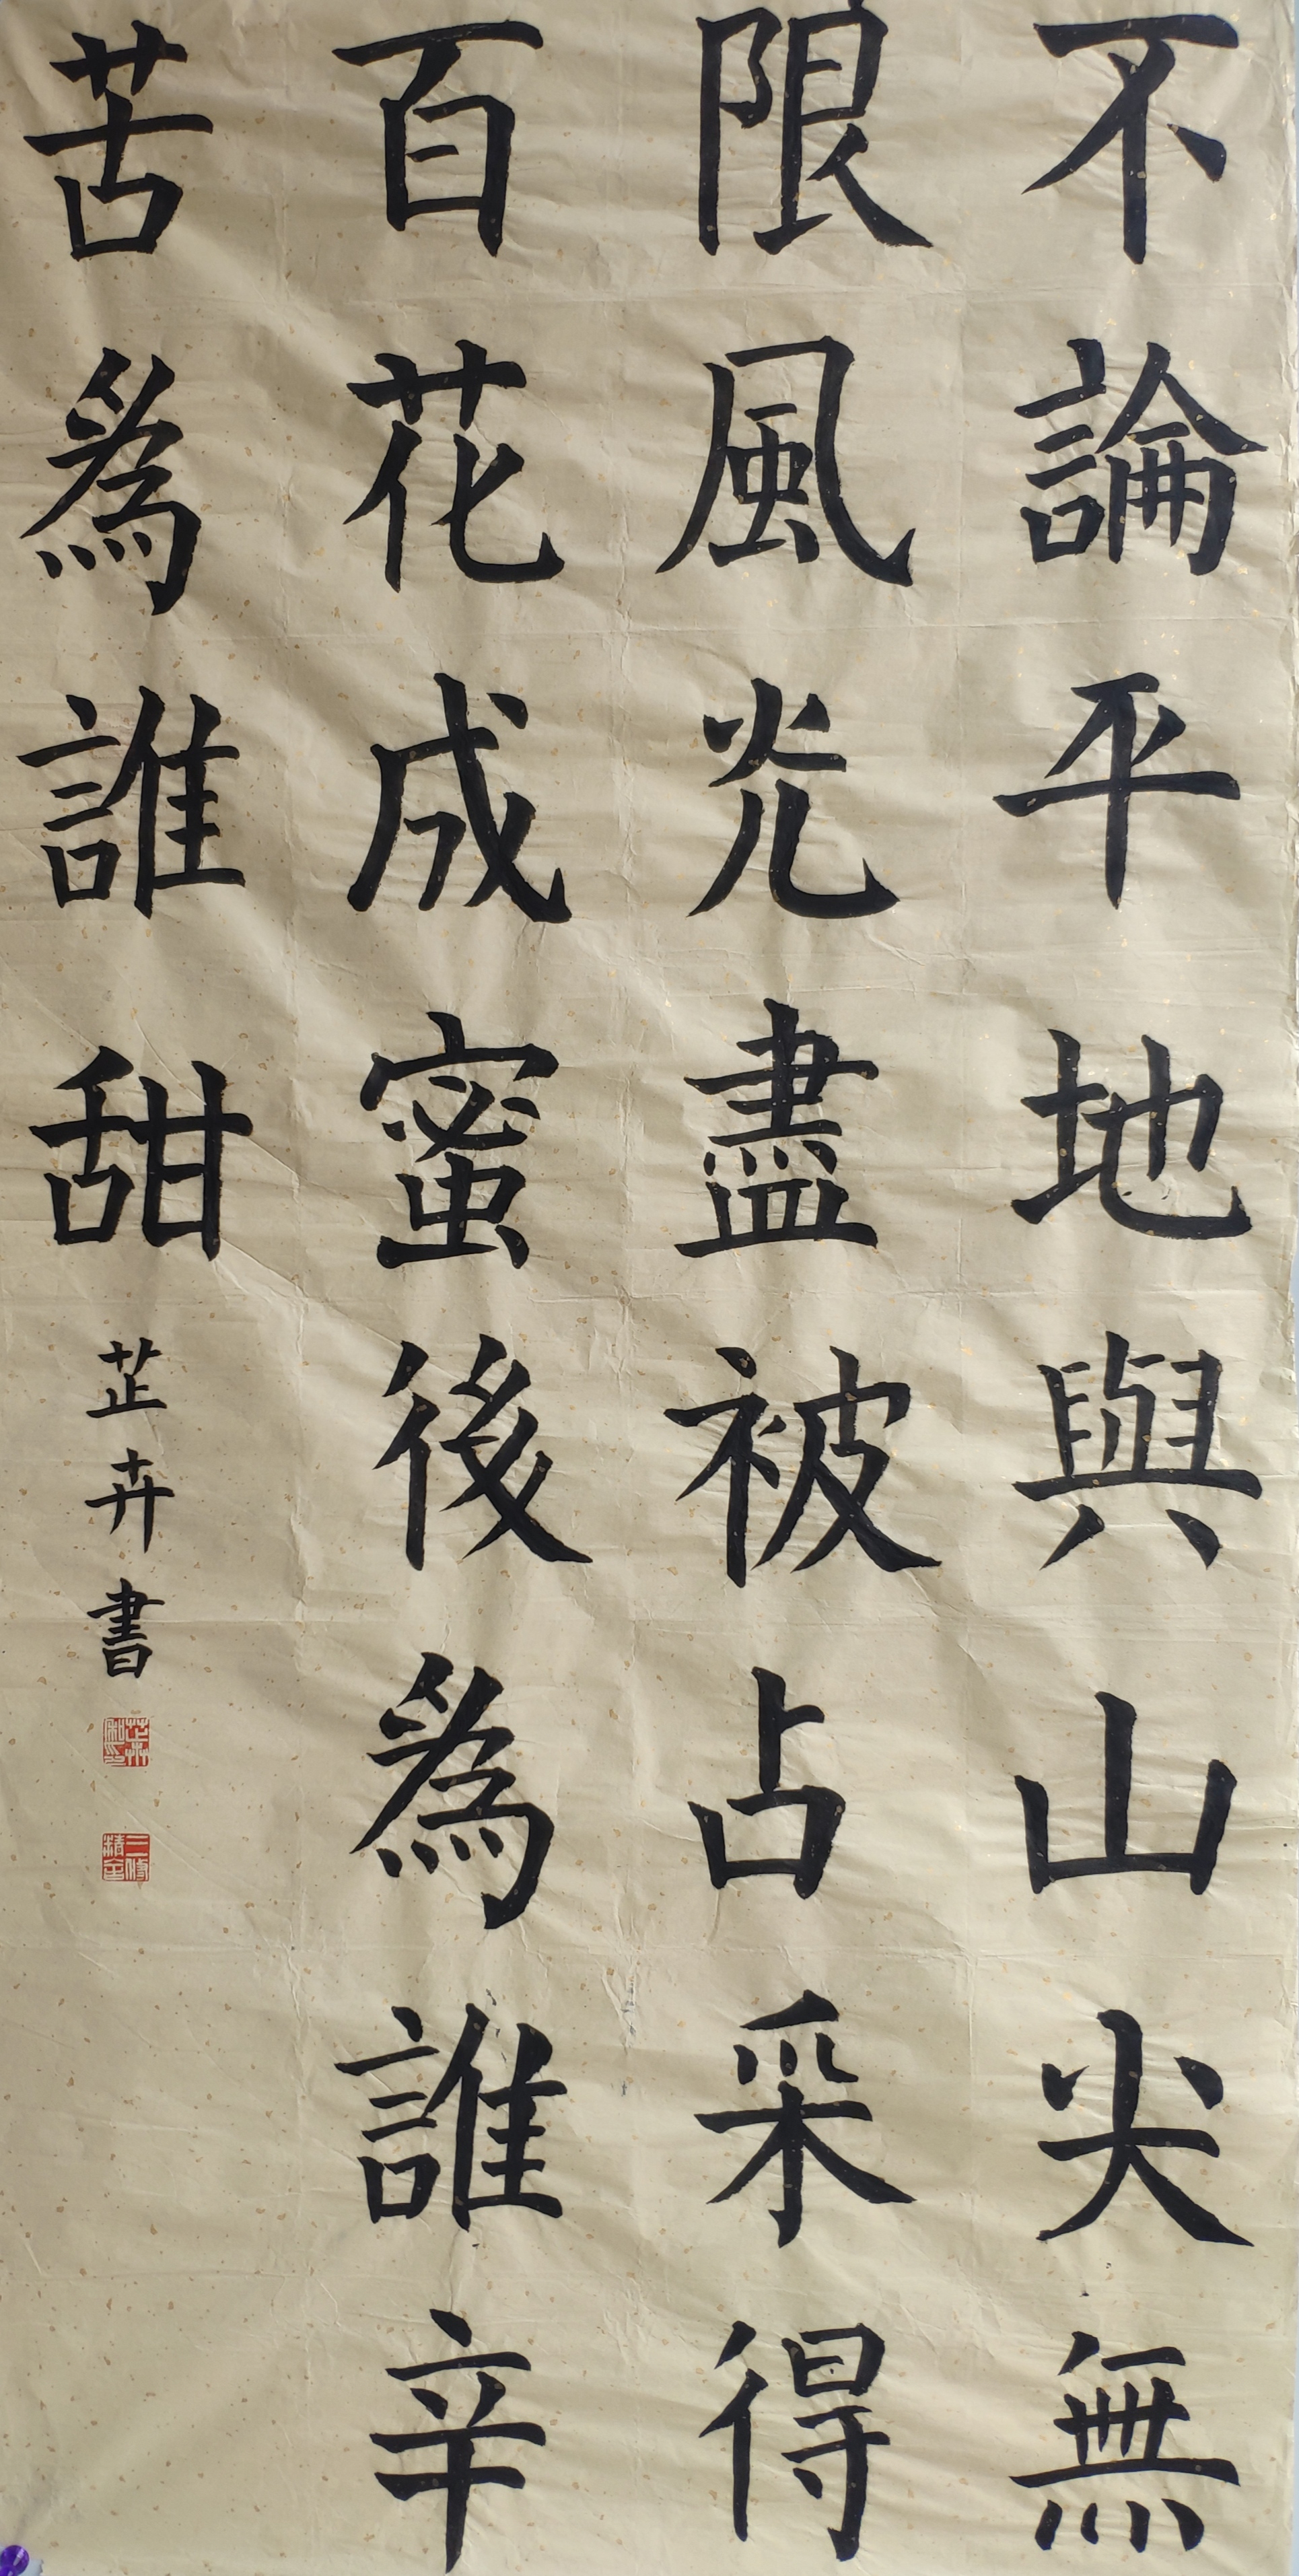 不論平地與山尖無
限風光盡被占采得
百花成蜜後為誰辛
苦為誰甜
芷卉書